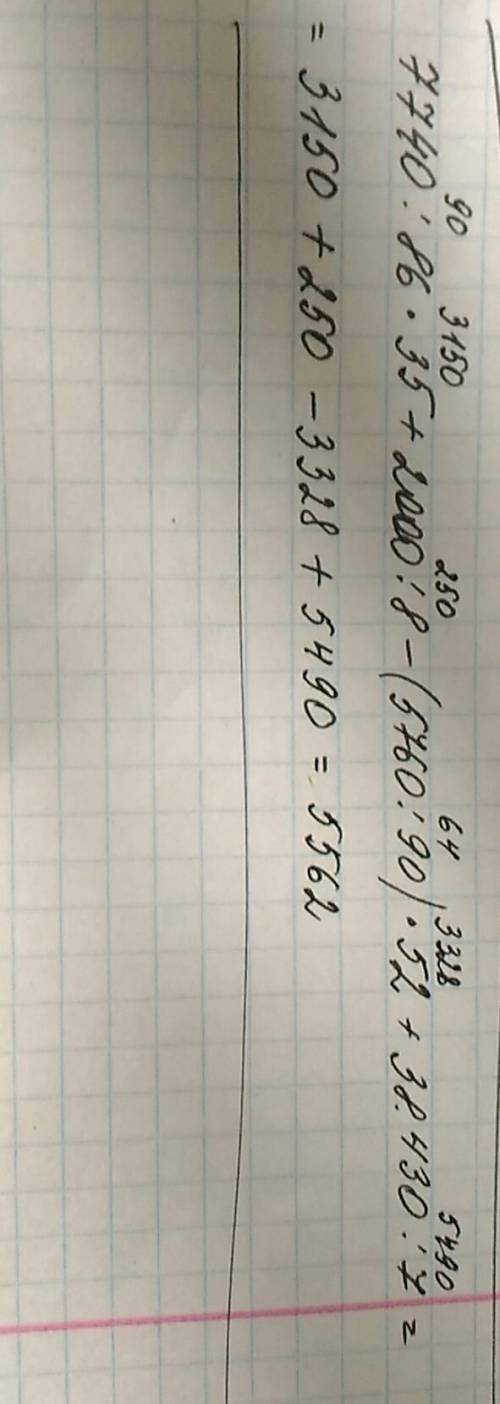 90 3150 250 64 3328 5490
7740 : 86 · 35 + 2000 : 8 - (5760 : 90) · 52 + 38.430 : 7 =
= 3150 + 250 - 3328 + 5490 = 5562